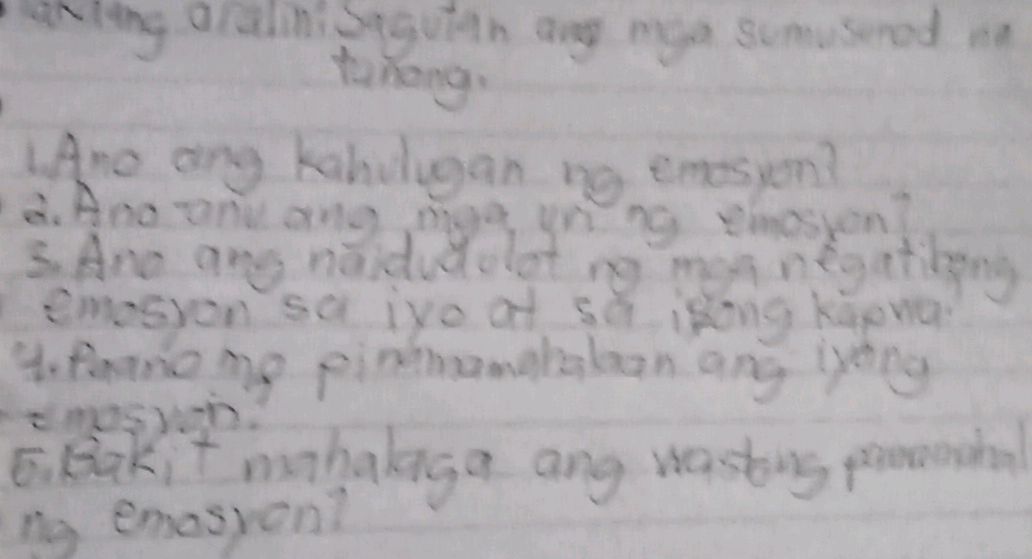 aralin: Sagutan ang mga sumusunod na
tanong.
1. Ano ang kahulugan ng emosyon?
2. Ano-ano ang mga uri ng emosyon?
3. Ano ang naidudulot ng mga negatibong
emosyon sa iyo at sa iyong kapwa?
4. Paano mo pinamamahalaan ang iyong
emosyon.
5. Bakit mahalaga ang wastong
ng emosyon?